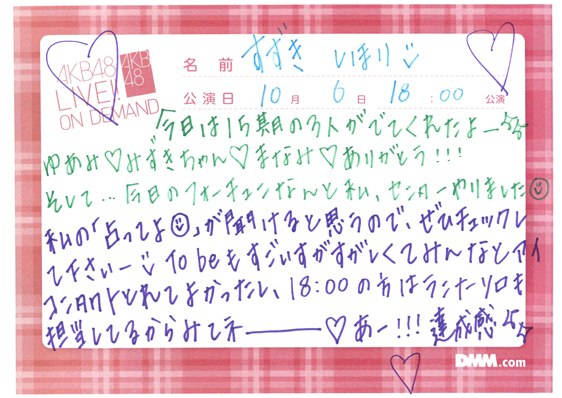 AKB48
LIVE!!
ON DEMAND
AKB
48
名 前 すずき しほり
公演日 10月 6日 18:00 公演
「今日は15期の3人がでてくれたよー
ゆあみ♡みずきちゃん♡まなみ♡ありがとう!!!
そして…今日のフォーチュンなんと私、センターやりました
私の「占ってよ」が聞けると思うので、ぜひチェックし
て下さいー To beもすごいすがすがしくてみんなとアイ
コンタクトとれてよかったし、18:00の方はランナーソロも
担当してるからみてネ――♡あー!!!達成感
DMM.com